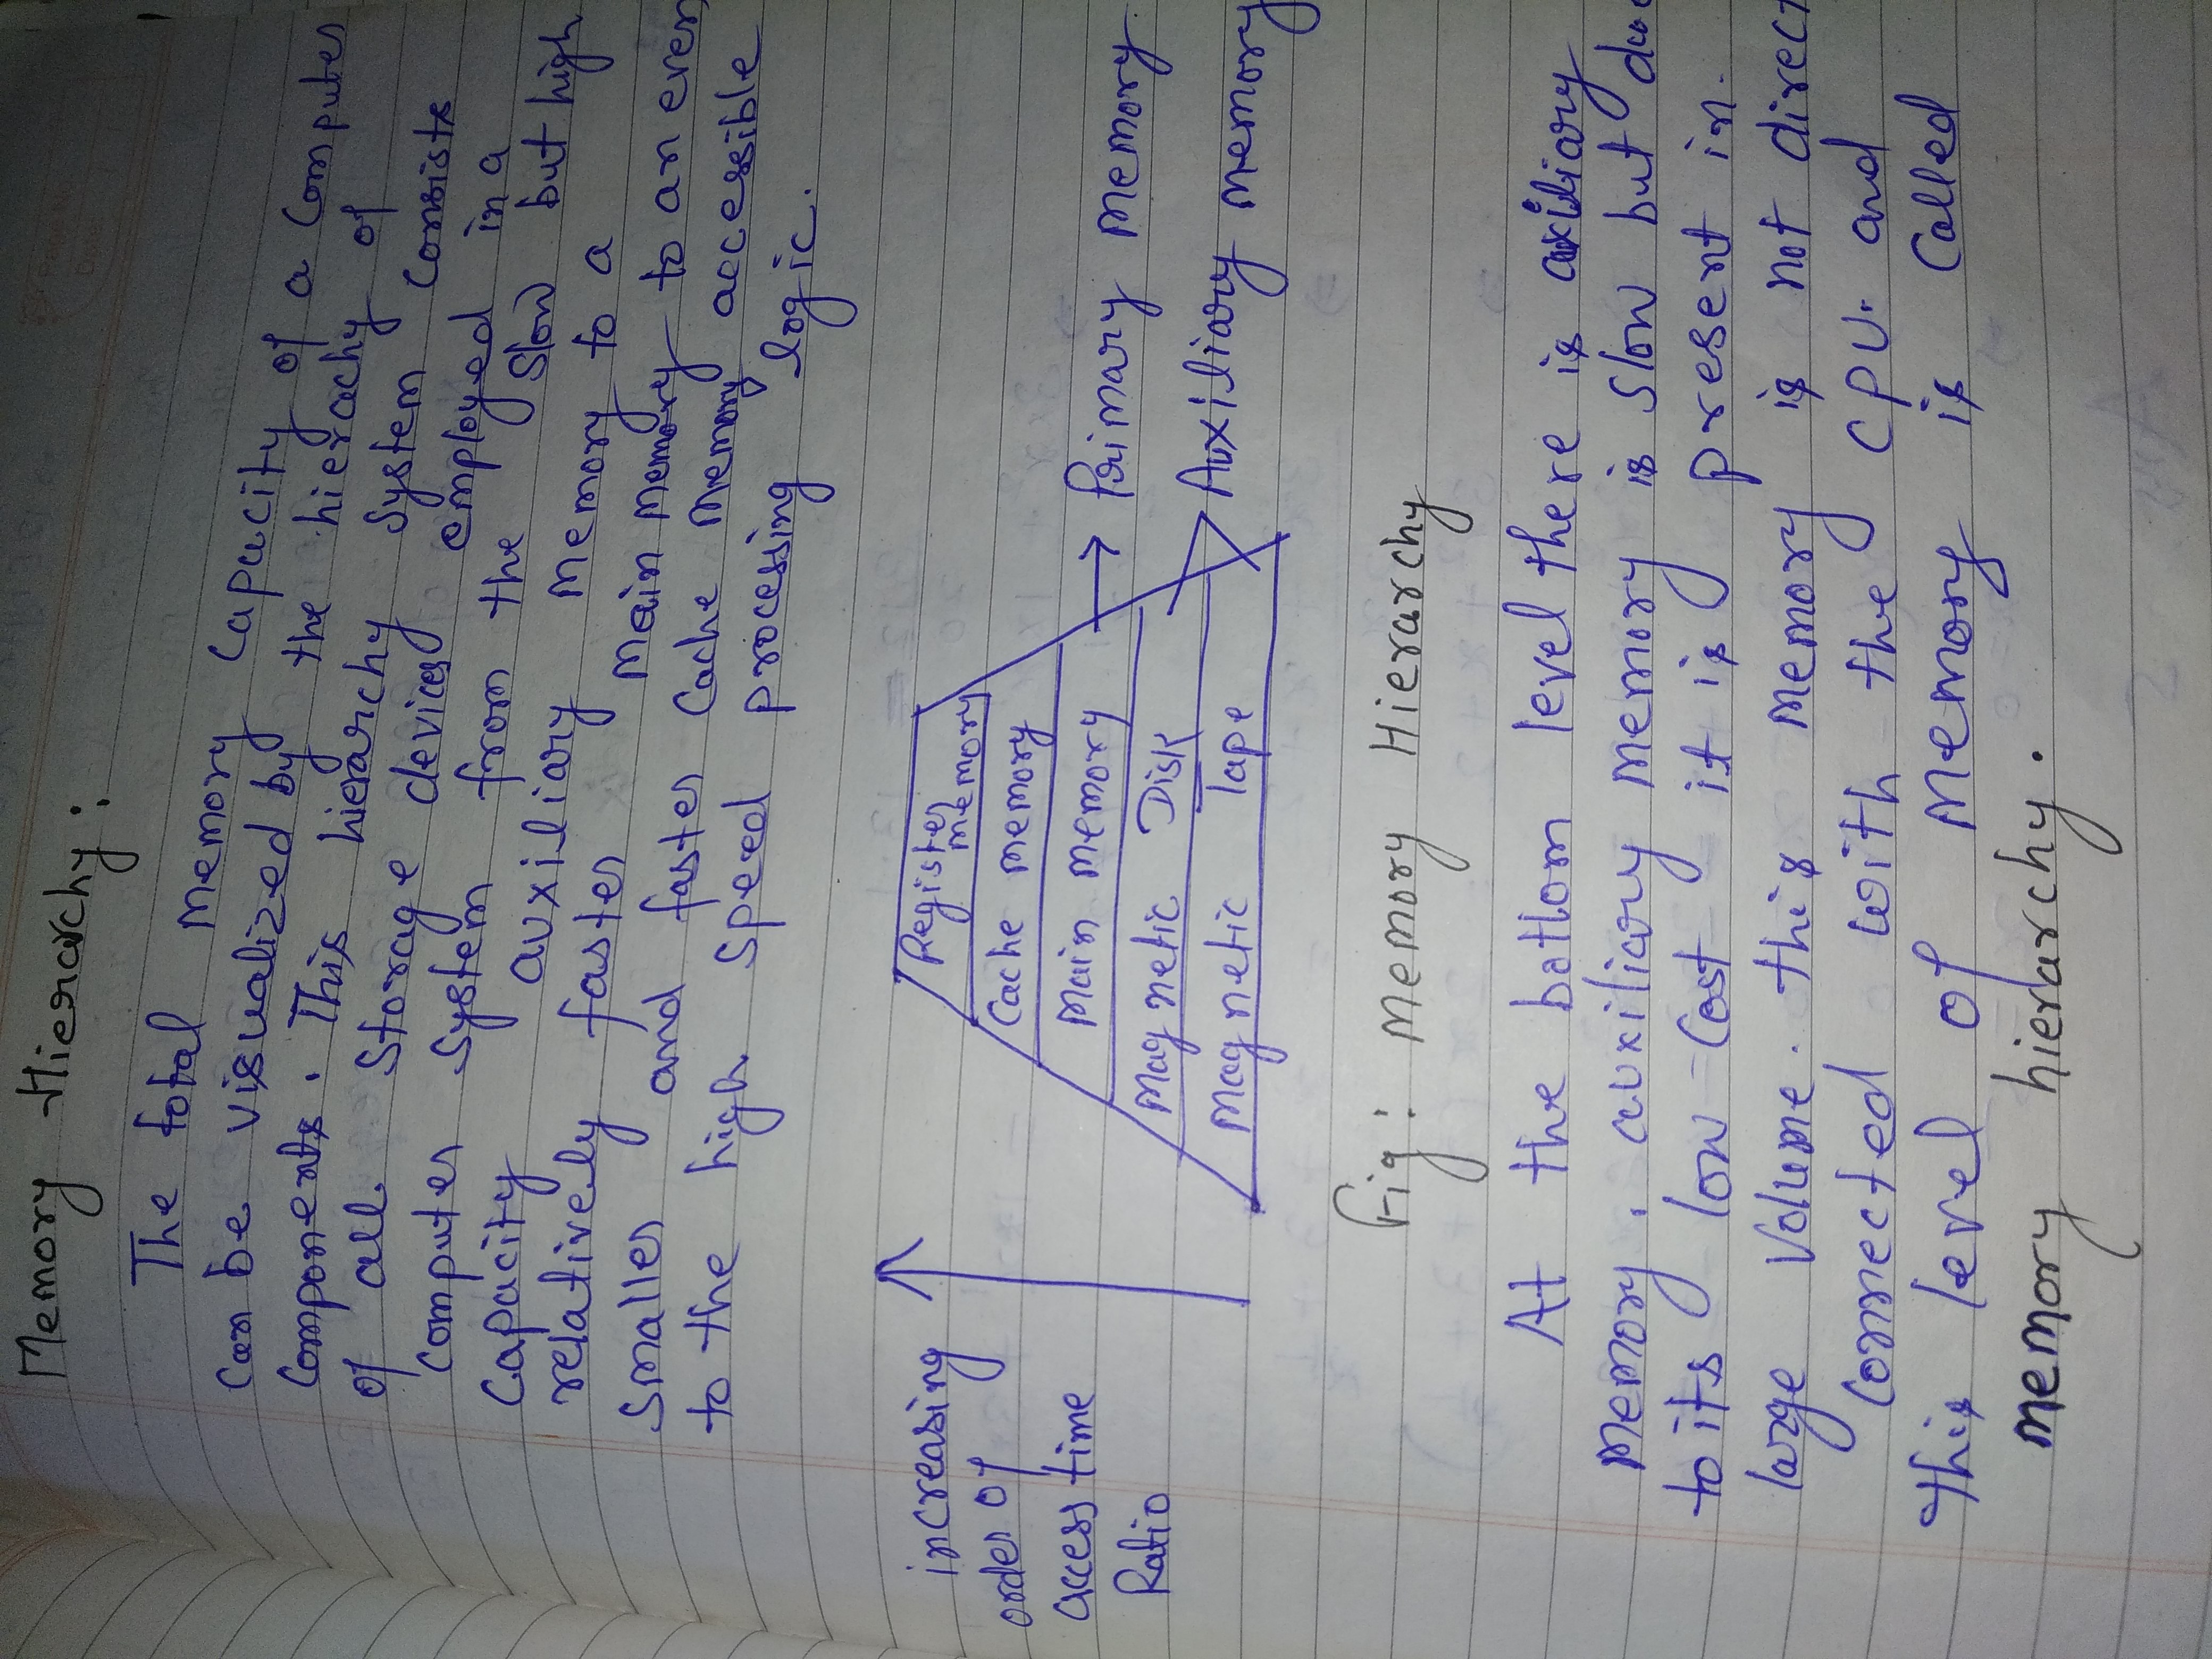 Memory Hierarchy:
The total memory capacity of a computer
can be visualized by the hierarchy of
components. This hierarchy system consists
of all storage devices employed in a
computer system from the slow but high
capacity auxiliary memory to a
relatively faster main memory to an even
smaller and faster cache memory accessible
to the high speed processing logic.
increasing
order of
access time
Ratio
Register
memory
Cache memory
Main memory
Magnetic Disk
Magnetic Tape
Primary memory
Auxiliary memory
Fig: Memory Hierarchy
At the bottom level there is auxiliary
memory. auxiliary memory is slow but due
to its low cost it is present in
large volume. this memory is not direct
connected with the CPU. and
this level of memory is called
memory hierarchy.